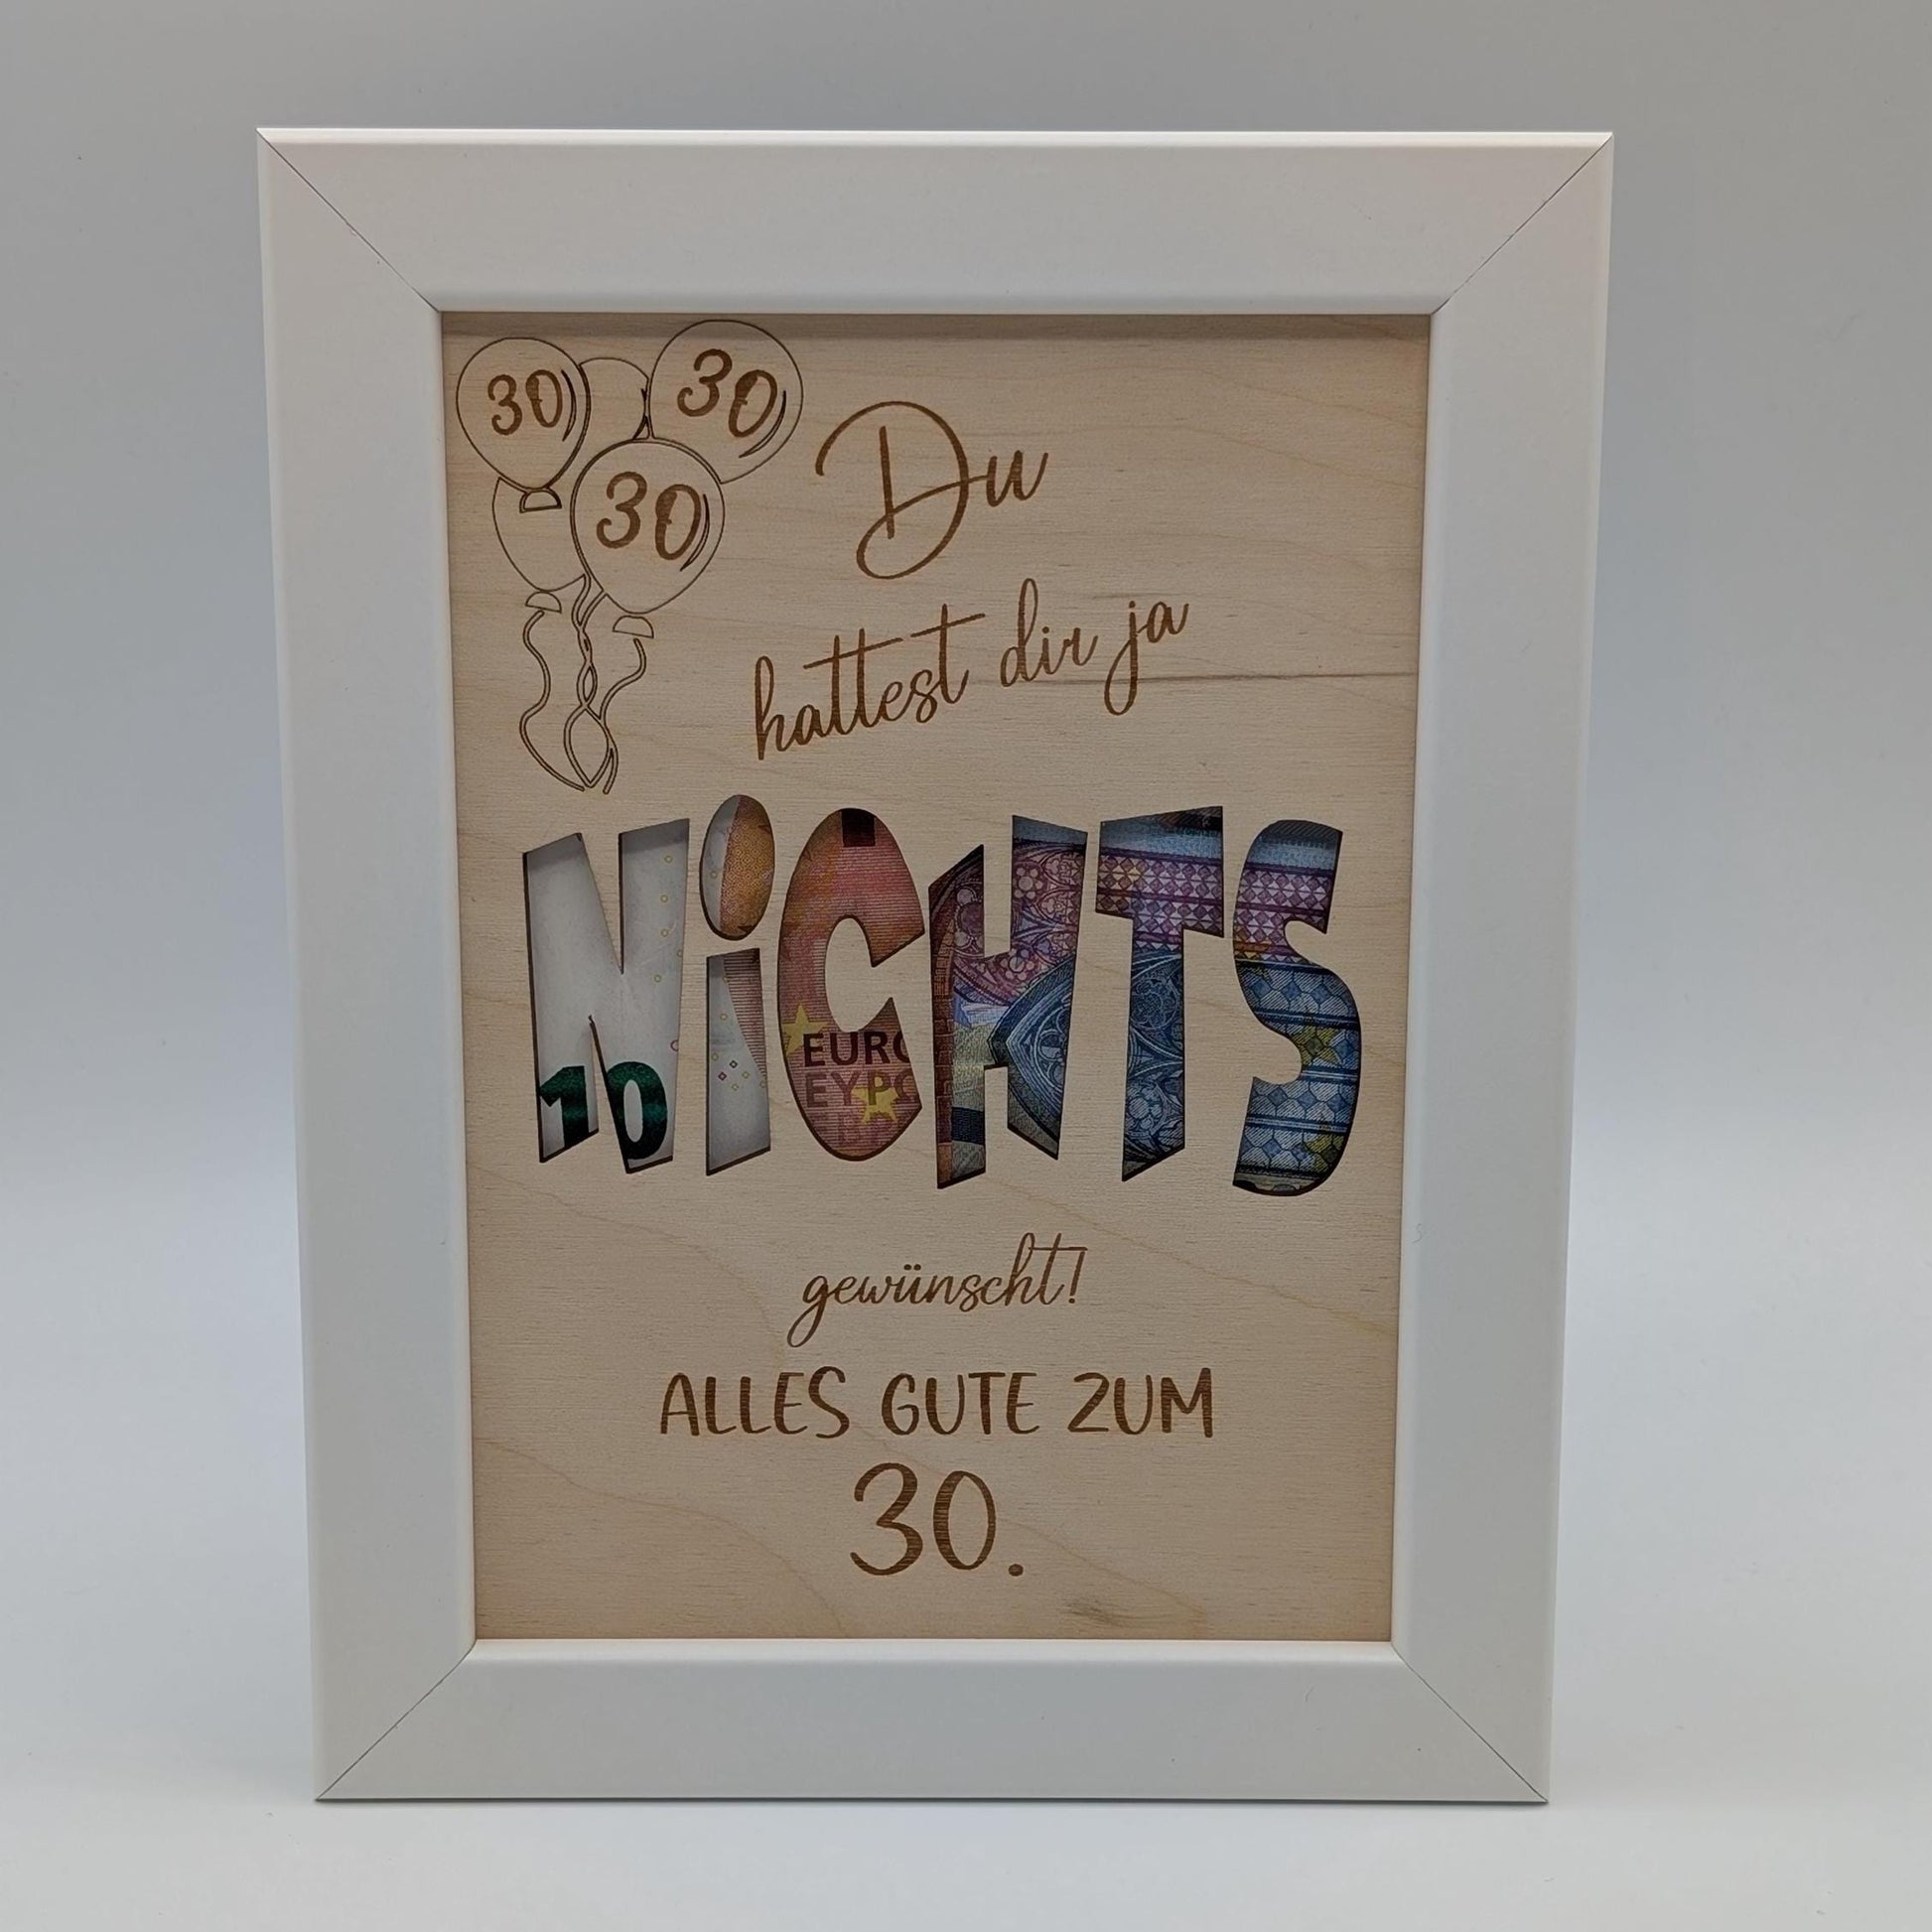 30
30
30
Du
hattest dir ja
NiCHTS
10
EURO
gewünscht!
ALLES GUTE ZUM
30.